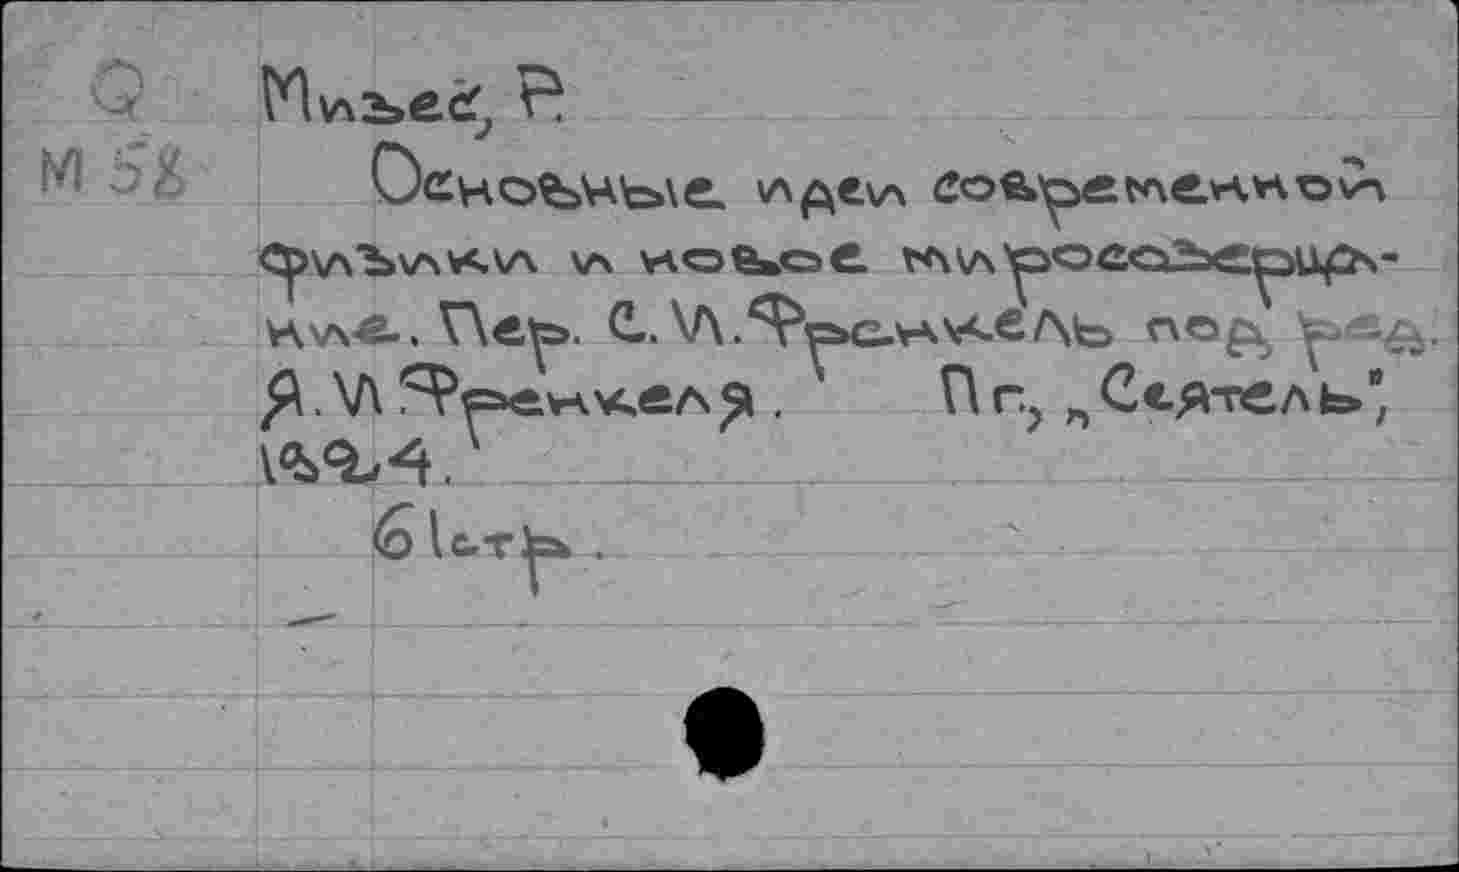 Q
М 58
Мизес, Р.
Основные идеи современной
физики и новое миросозерца-
ние. Пер. С. И. Френкель под ред.
Я. И. Френкеля. Пг., „Сеятель",
1924.
61 стр.